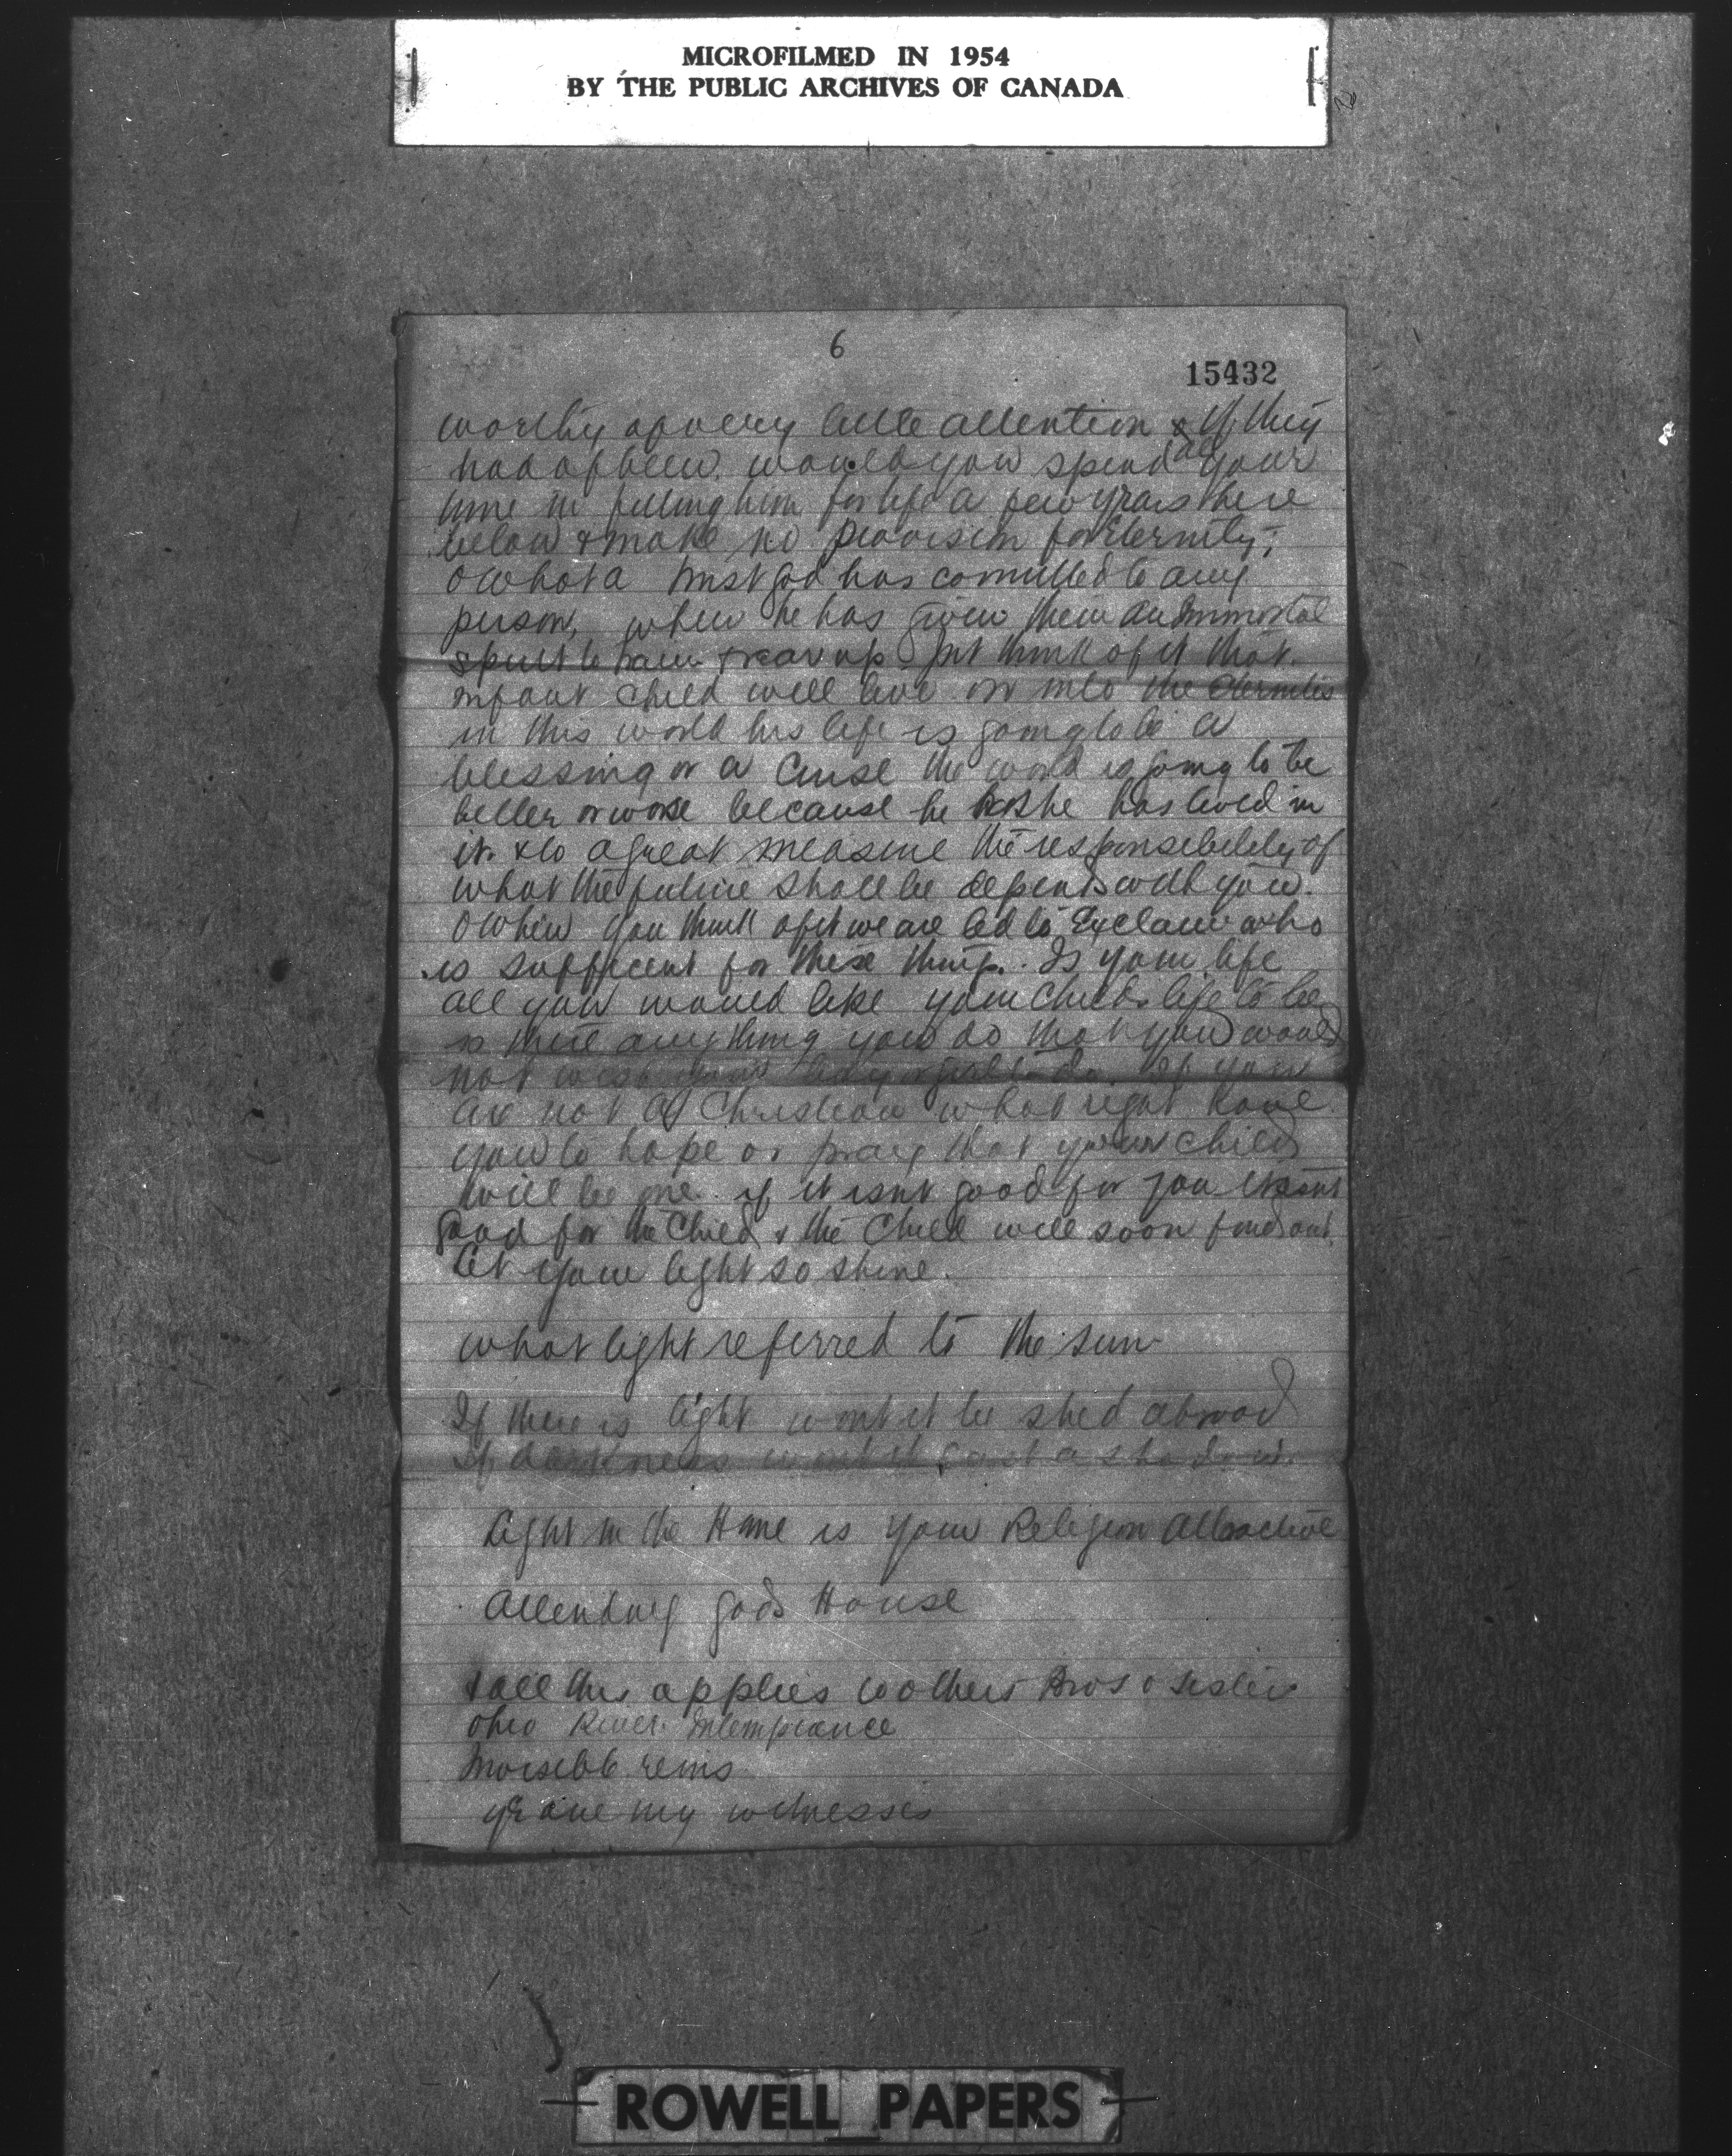 MICROFILMED IN 1954
BY THE PUBLIC ARCHIVES OF CANADA
6
15432
worthy of very little attention & If they
had of been. would you spend all your
time in fitting him for life a few years here
below & make no provision for Eternity;
O what a trust God has committed to any
person, when he has given them an Immortal
spirit to train & rear up Just think of it that
infant child will live on into the Eternities
in this world his life is going to be a
blessing or a curse the world is going to be
better or worse because he or she has lived in
it. & to a great measure the responsibility of
what the future shall be depends with you.
O when you think of it we are led to Exclaim who
is sufficient for these things. Is your life
all you would like your childs life to be
is there anything you do that you would
not wish your boy or girl to do. If you
are not a Christian what right have
you to hope or pray that your child
will be one. if it isnt good for you it isnt
good for the child & the child will soon find out.
let your light so shine.
what light referred to the sun
If there is light wont it be shed abroad
If darkness wont it cast a shadow.
Light in the Home is your Religion Attractive
Attending gods House
& all this applies to others Bros & sisters
Ohio River. Intemperance
Invisible reins
ye are my witnesses
ROWELL PAPERS